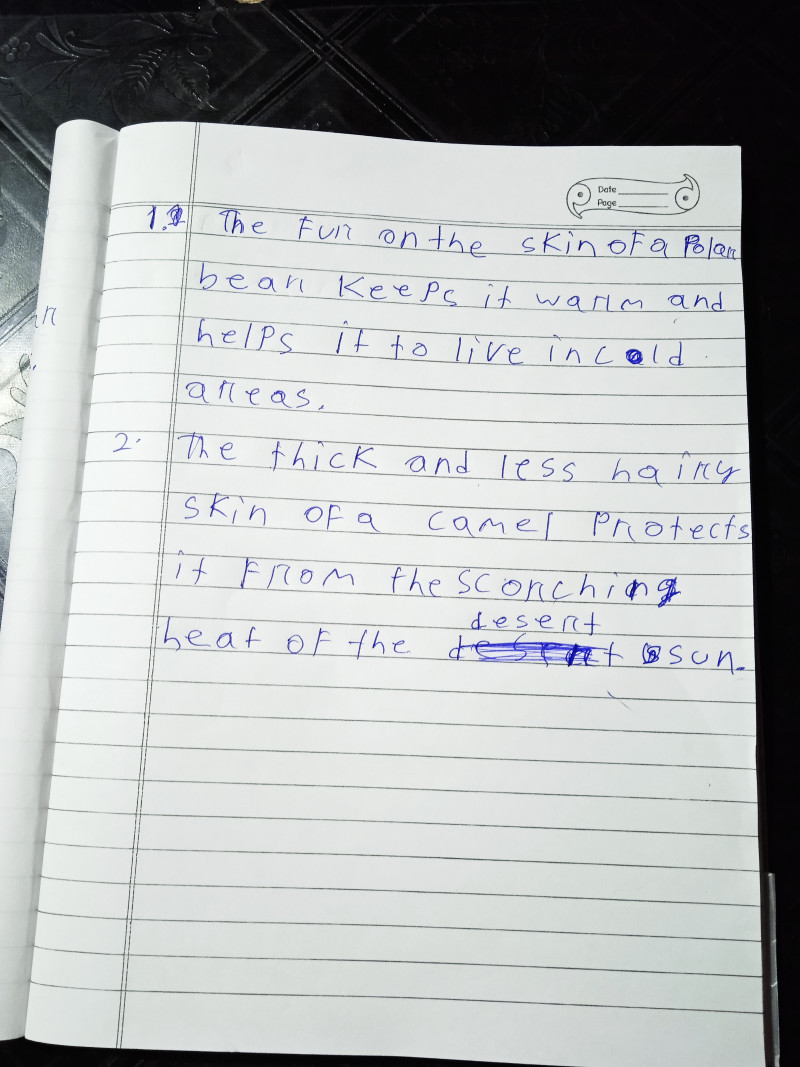 Date
Page
1. The Fur on the skin of a Polar
bear Keeps it warm and
helps it to live in cold
areas.
2. The thick and less hairy
skin of a camel Protects
it From the scorching
desert
heat of the sun.